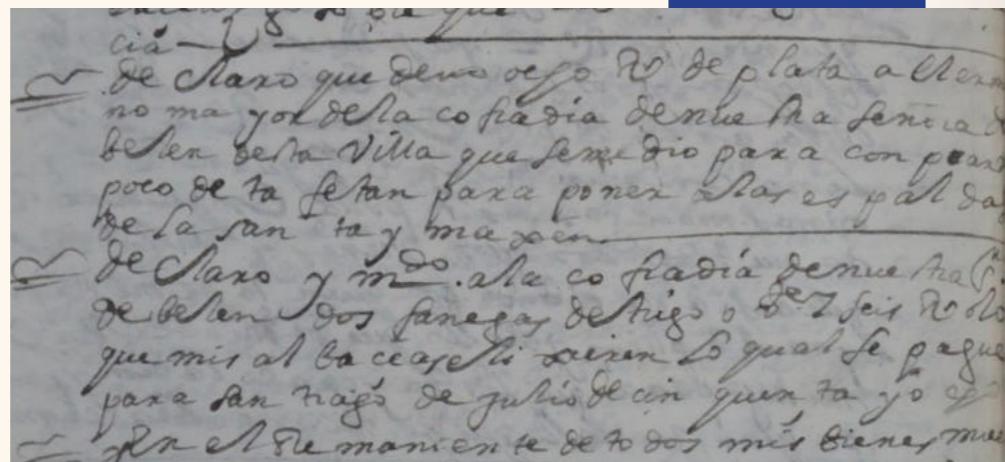 cia
de claro que devo ocho Rs de plata a el
no mayor de la cofradia de nuestra señora d
belen desta Villa que se me dio para conprar
poco de ta fetan para poner a las espalda
de la santa ymaxen
de claro y mdo. a la cofradia de nuestra
de belen dos fanegas de trigo o Rs lo
que mis albaceas elixieren Lo qual se pague
para santiago de julio de cinquenta y
en el Remaniente de todos mis bienes mue